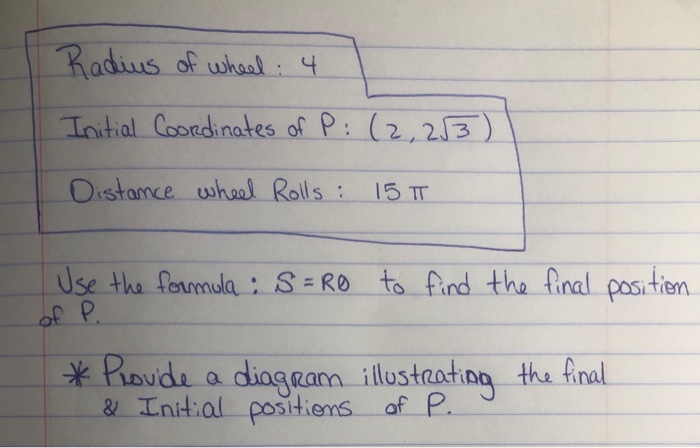 Radius of wheel : 4
Initial Coordinates of P : (2, 2√3)
Distance wheel Rolls : 15 π
Use the formula : S = Rθ to find the final position
of P.
* Provide a diagram illustrating the final
& Initial positions of P.